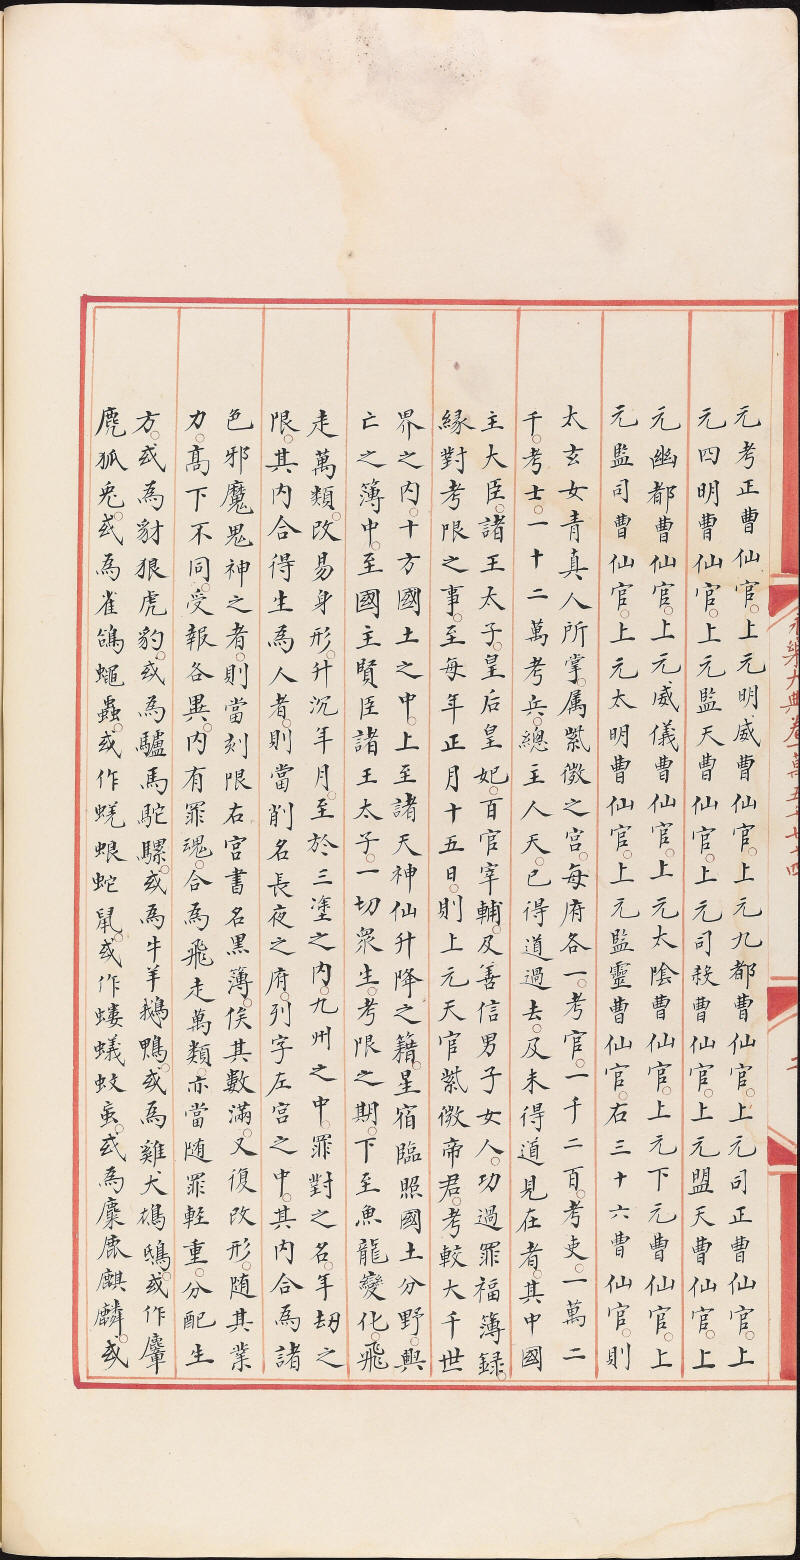 永樂大典卷一萬五千七十四
元考正曹仙官。上元明威曹仙官。上元九都曹仙官。上元司正曹仙官。上
元四明曹仙官。上元監天曹仙官。上元司殺曹仙官。上元盟天曹仙官。上
元幽都曹仙官。上元威儀曹仙官。上元太陰曹仙官。上元下元曹仙官。上
元監司曹仙官。上元太明曹仙官。上元監靈曹仙官。右三十六曹仙官。則
太玄女青真人所掌。属紫微之宫。每府各一。考官。一千二百。考吏。一萬二
千。考士。一十二萬考兵。總主人天。已得道過去。及未得道見在者。其中國
主大臣。諸王太子。皇后皇妃。百官宰輔。及善信男子女人。功過罪福簿録。
緣對考限之事。至每年正月十五日。則上元天官紫微帝君。考較大千世
界之内。十方國土之中。上至諸天神仙升降之籍。星宿臨照國土分野。與
亡之簿中。至國主賢臣諸王太子。一切衆生。考限之期。下至魚龍變化。飛
走萬類。改易身形。升沉年月。至於三塗之内。九州之中。罪對之名。年劫之
限。其内合得生為人者。則當削名長夜之府。列字左宫之中。其内合為諸
色邪魔鬼神之者。則當刻限右宫書名黑簿。俟其數滿。又復改形。随其業
力。高下不同。受報各異。内有罪魂。合為飛走萬類。亦當随罪輕重。分配生
方。或為豺狼虎豹。或為驢馬駝騾。或為牛羊鵝鴨。或為雞犬鴆鴟。或作麞
麂狐兎。或為雀鴿蠅蟲。或作蜣蜋蛇鼠。或作螻蟻蚊虿。或為麋鹿麒麟。或